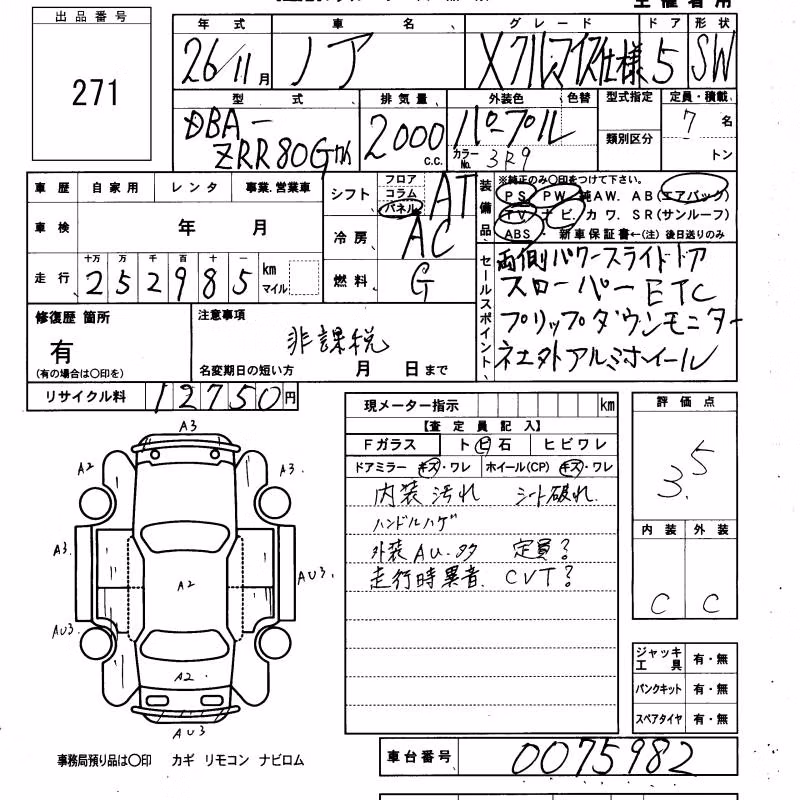 主催者用
出品番号
271
年式 車名 グレード ドア 形状
26/11月 ノア Xクルマイス仕様 5 SW
型式 排気量 外装色 色替 型式指定 定員・積載
DBA-
ZRR80Gカイ 2000 c.c. パープル
カラーNo. 3R9
類別区分
7 名
トン
車歴 自家用 レンタ 事業.営業車
車検 年 月
走行 十万 万 千 百 十 一
252985 km マイル
シフト フロア コラム パネル AT
冷房 AC
燃料 G
装備品 ※純正のみ〇印をつけて下さい。
PS PW 純AW. AB(エアバッグ)
TV ナビ. カワ. SR(サンルーフ)
ABS・新車保証書←(注) 後日送りのみ
セールスポイント、
両側パワースライドドア
スローパー ETC
フリップダウンモニター
ネエタトアルミホイール
修復歴 箇所
有
(有の場合は〇印を)
注意事項
非課税
名変期日の短い方 月 日まで
リサイクル料 12750円
現メーター指示 km
【査定員記入】
Fガラス トビ石 ヒビワレ
ドアミラー キズ・ワレ ホイール(CP) キズ・ワレ
内装汚れ シート破れ.
ハンドルハゲ
外装AU.タタ 定員?
走行時異音. CVT?
評価点
3.5
内装 外装
C C
A3
A2
A3.
A3.
A2
AU3.
AU3.
A2.
AU3
ジャッキ工具 有・無
パンクキット 有・無
スペアタイヤ 有・無
事務局預り品は〇印 カギ リモコン ナビロム
車台番号 0075982